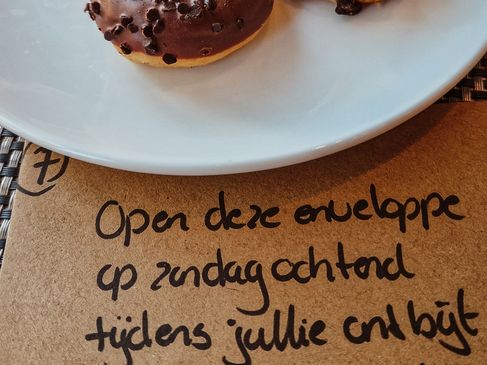 7
Open deze enveloppe
op zondagochtend
tijdens jullie ontbijt